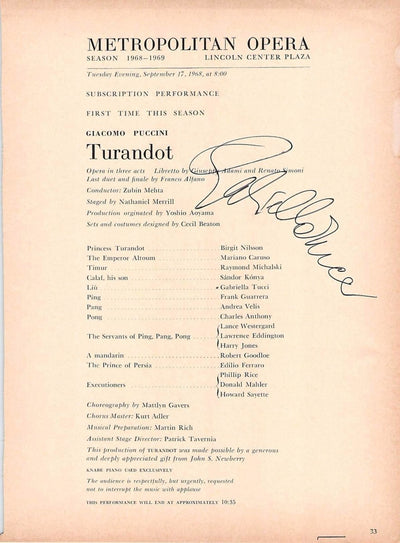 METROPOLITAN OPERA
SEASON 1968–1969 LINCOLN CENTER PLAZA
Tuesday Evening, September 17, 1968, at 8:00
SUBSCRIPTION PERFORMANCE
FIRST TIME THIS SEASON
GIACOMO PUCCINI
Turandot
Opera in three acts Libretto by Giuseppe Adami and Renato Simoni
Last duet and finale by Franco Alfano
Conductor: Zubin Mehta
Staged by Nathaniel Merrill
Production originated by Yoshio Aoyama
Sets and costumes designed by Cecil Beaton
Gabriella Tucci
Princess Turandot Birgit Nilsson
The Emperor Altoum Mariano Caruso
Timur Raymond Michalski
Calaf, his son Sándor Kónya
Liù Gabriella Tucci
Ping Frank Guarrera
Pang Andrea Velis
Pong Charles Anthony
The Servants of Ping, Pang, Pong Lance Westergard
Lawrence Eddington
Harry Jones
A mandarin Robert Goodloe
The Prince of Persia Edilio Ferraro
Executioners Phillip Rice
Donald Mahler
Howard Sayette
Choreography by Mattlyn Gavers
Chorus Master: Kurt Adler
Musical Preparation: Martin Rich
Assistant Stage Director: Patrick Tavernia
This production of TURANDOT was made possible by a generous
and deeply appreciated gift from John S. Newberry
KNABE PIANO USED EXCLUSIVELY
The audience is respectfully, but urgently, requested
not to interrupt the music with applause
THIS PERFORMANCE WILL END AT APPROXIMATELY 10:35
33